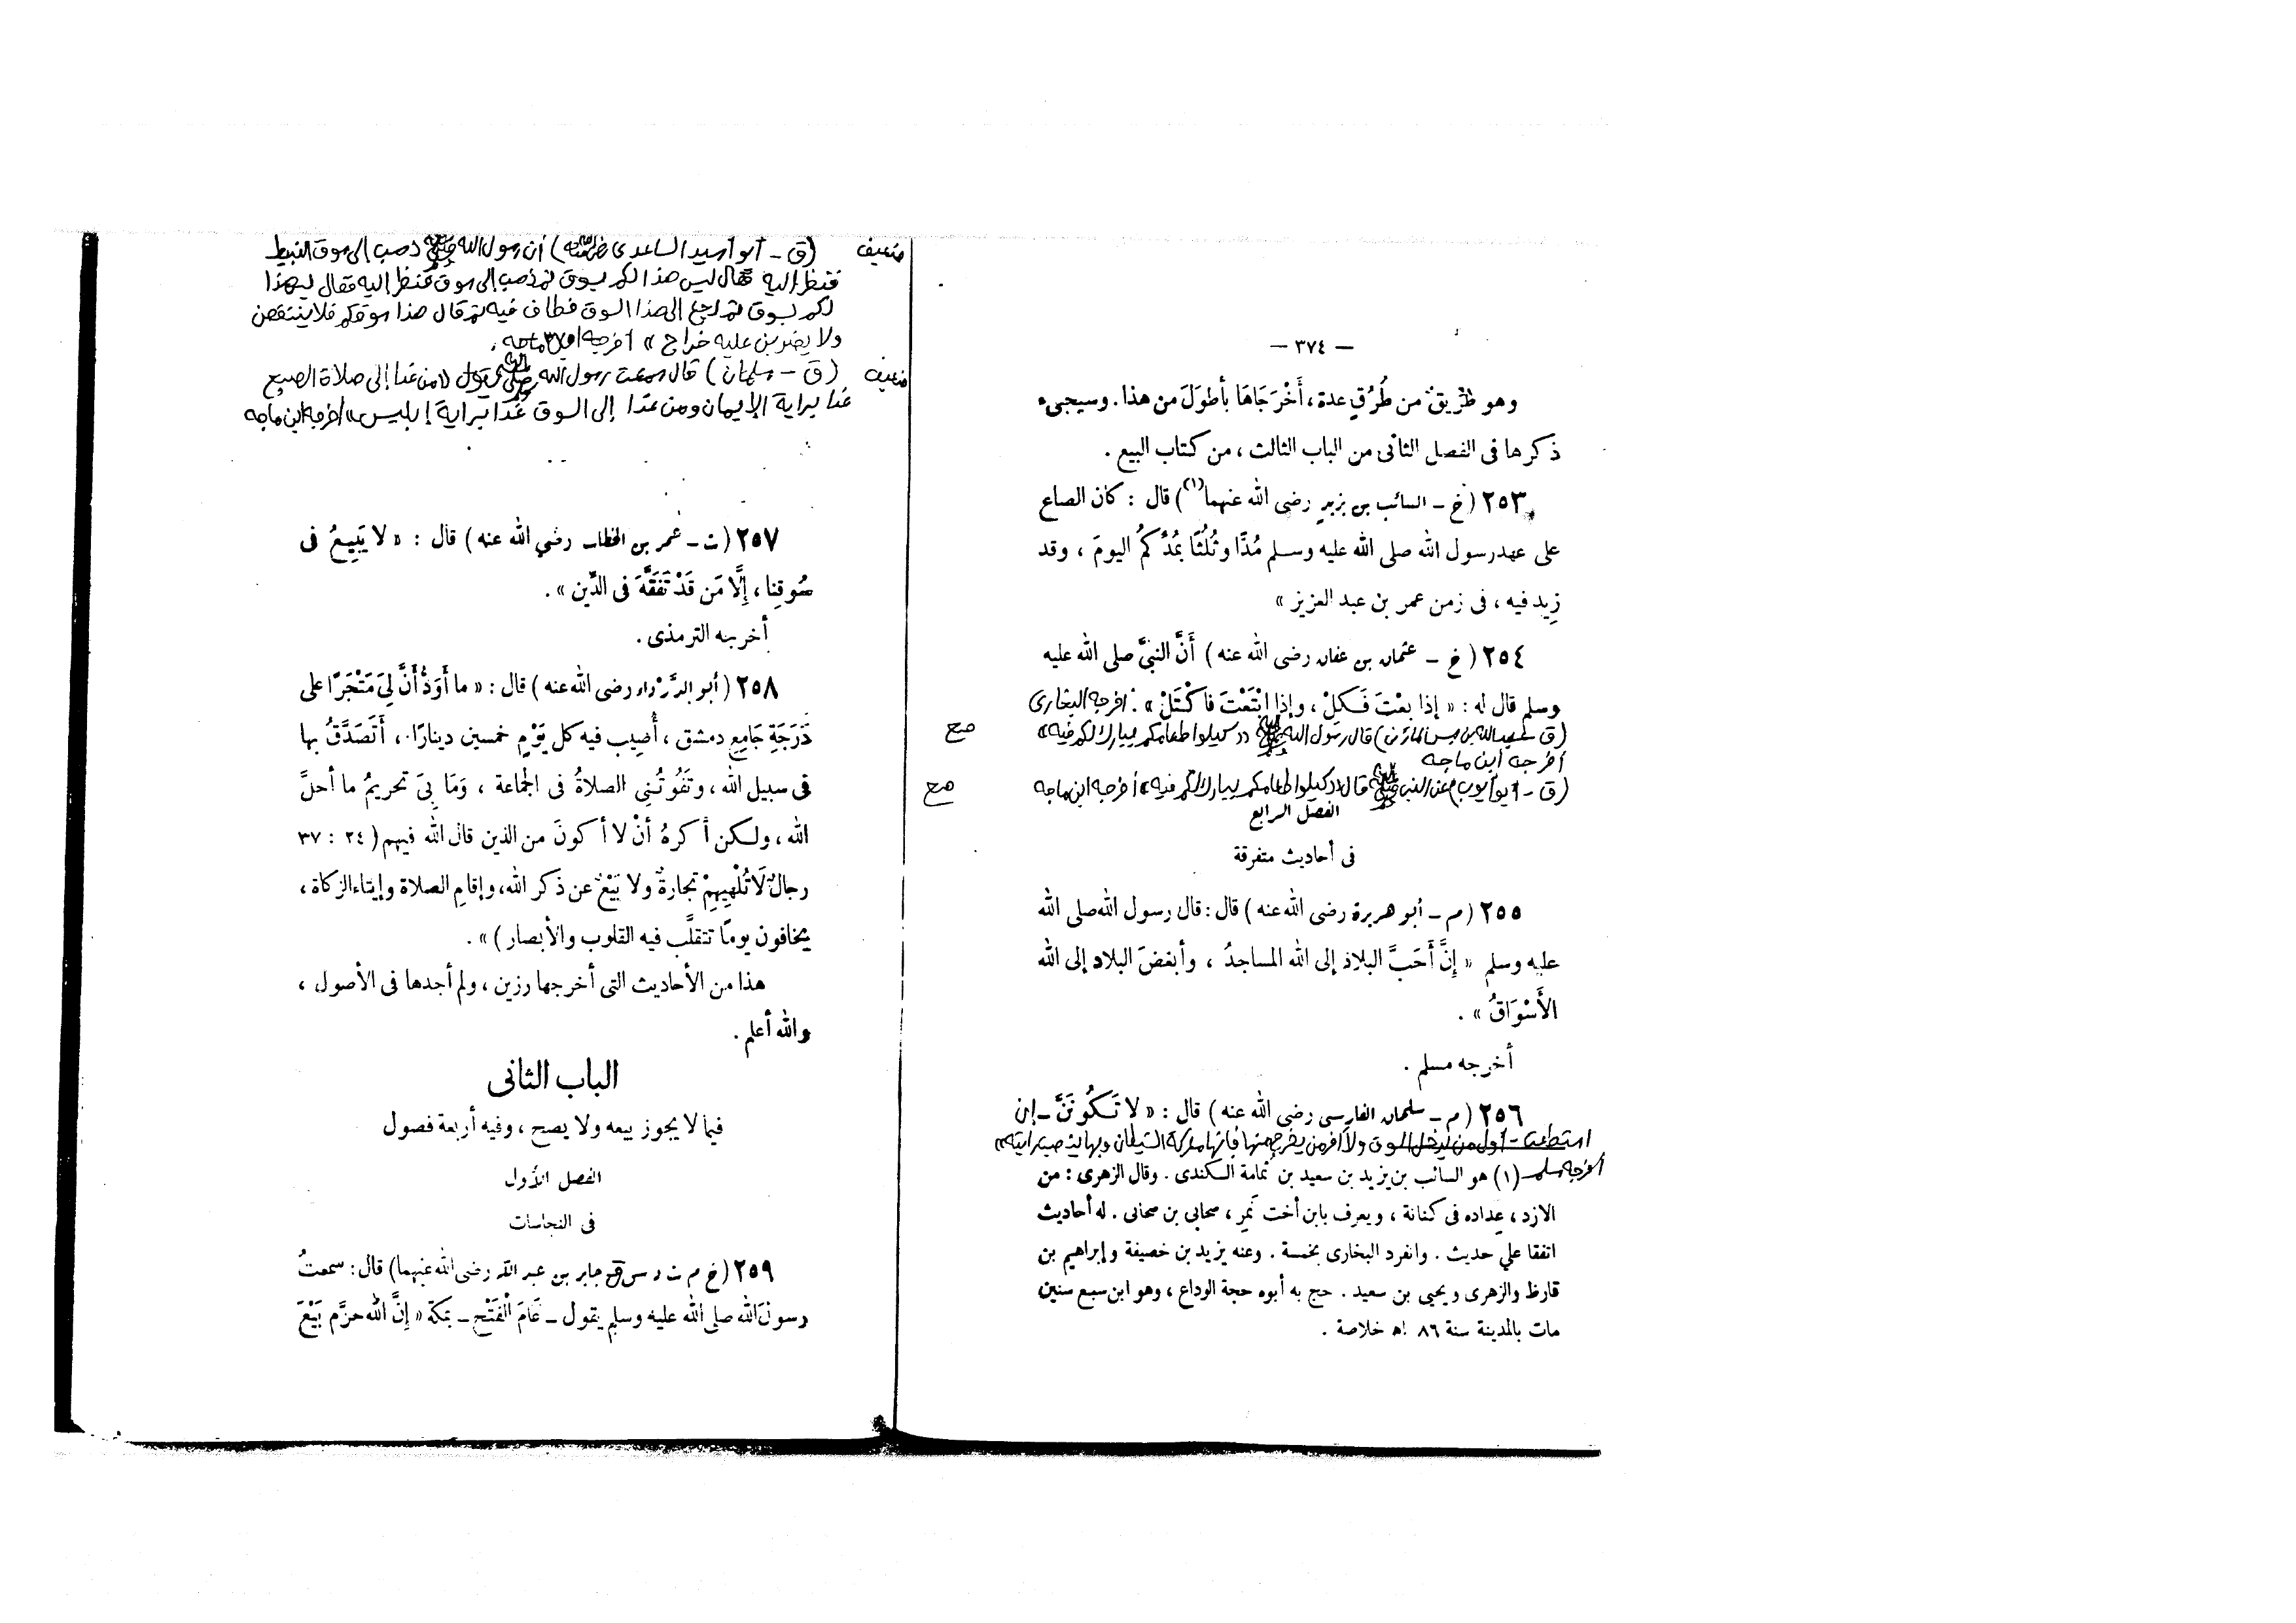 — ٣٧٤ —
وهو طريق من طُرُقٍ عدة، أَخْرَجَاهَا بأطوَلَ من هذا. وسيجىء
ذكرها فى الفصل الثانى من الباب الثالث، من كتاب البيع.
٢٥٣ (خ – السائب بن يزيد رضى الله عنهما(١)) قال: كان الصاع
على عهد رسول الله صلى الله عليه وسلم مُدًّا وثُلُثًا بمُدِّكمُ اليومَ، وقد
زِيد فيه، فى زمن عمر بن عبد العزيز »
٢٥٤ (خ – عثمان بن عفان رضى الله عنه) أَنَّ النبىَّ صلى الله عليه
وسلم قال له: « إذا بعْتَ فَكِلْ، وإذا ابْتَعْتَ فاكْتَلْ ». أخرجه البخارى
(ق – عبدالله بن بسر المازنى) قال رسول الله ﷺ «كيلوا طعامكم يبارك لكم فيه» صح
أخرجه ابن ماجه
(ق – أبو أيوب) عن النبى ﷺ قال «كيلوا طعامكم يبارك لكم فيه» أخرجه ابن ماجه صح
الفصل الرابع
فى أحاديث متفرقة
٢٥٥ (م – أبو هريرة رضى الله عنه) قال: قال رسول الله صلى الله
عليه وسلم « إِنَّ أَحَبَّ البلاد إلى الله المساجدُ، وأبغضَ البلاد إلى الله
الأَسْوَاقُ ».
أخرجه مسلم.
٢٥٦ (م – سلمان الفارسى رضى الله عنه) قال: « لا تَكُونَنَّ – إن
استطعت – أول من يدخل السوق ولا آخر من يخرج منها فإنها معركة الشيطان وبها ينصب رايته»
أخرجه مسلم
(١) هو السائب بن يزيد بن سعيد بن ثمامة الكندى. وقال الزهرى: من
الازد، عِداده فى كنانة، ويعرف بابن أخت نَمِر، صحابى بن صحابى. له أحاديث
اتفقا على حديث. وانفرد البخارى بخمسة. وعنه يزيد بن خصيفة وإبراهيم بن
قارظ والزهرى ويحيى بن سعيد. حج به أبوه حجة الوداع، وهو ابن سبع سنين
مات بالمدينة سنة ٨٦ اه خلاصة.
ضعيف (ق – أبو أسيد الساعدى رضى الله عنه) أن رسول الله ﷺ ذهب إلى سوق النبيط
فنظر إليه فقال ليس هذا لكم بسوق ثم ذهب إلى سوق فنظر إليه فقال ليس هذا
لكم بسوق ثم رجع إلى هذا السوق فطاف فيه ثم قال هذا سوقكم فلا ينتقصن
ولا يضربن عليه خراج » أخرجه ابن ماجه.
ضعيف (ق – سلمان) قال سمعت رسول الله ﷺ يقول «من غدا إلى صلاة الصبح
غدا براية الإيمان ومن غدا إلى السوق غدا براية إبليس» أخرجه ابن ماجه
٢٥٧ (ت – عمر بن الخطاب رضي الله عنه) قال: « لا يَبِيعُ فى
سُوقِنا، إِلَّا مَن قَدْ تَفَقَّهَ فى الدِّين ».
أخرجه الترمذى.
٢٥٨ (أبو الدَّرْداء رضى الله عنه) قال: « ما أَوَدُّ أَنَّ لِىَ مَتْجَرًا على
دَرَجَةِ جَامِع دمشق، أُصِيب فيه كل يَوْمٍ خمسين دينارًا، أَتَصَدَّقُ بها
فى سبيل الله، وتَفُوتُنِى الصلاةُ فى الجماعة، وَمَا بِىَ تحريمُ ما أحلَّ
الله، ولكن أكرهُ أنْ لا أكونَ من الذين قال الله فيهم (٢٤ : ٣٧
رجالٌ لَا تُلْهِيهِمْ تجارةٌ ولا بَيْعٌ عن ذكر الله، وإقامِ الصلاة وإيتاء الزكاة،
يخافون يومًا تتقلَّب فيه القلوب والأبصار) ».
هذا من الأحاديث التى أخرجها رزين، ولم أجدها فى الأصول،
والله أعلم.
الباب الثانى
فيما لا يجوز بيعه ولا يصح، وفيه أربعة فصول
الفصل الأول
فى النجاسات
٢٥٩ (خ م ت د س ق جابر بن عبد الله رضى الله عنهما) قال: سمعتُ
رسولَ الله صلى الله عليه وسلم يقول – عَامَ الْفَتْحِ – بمكة « إِنَّ الله حرَّم بَيْعَ